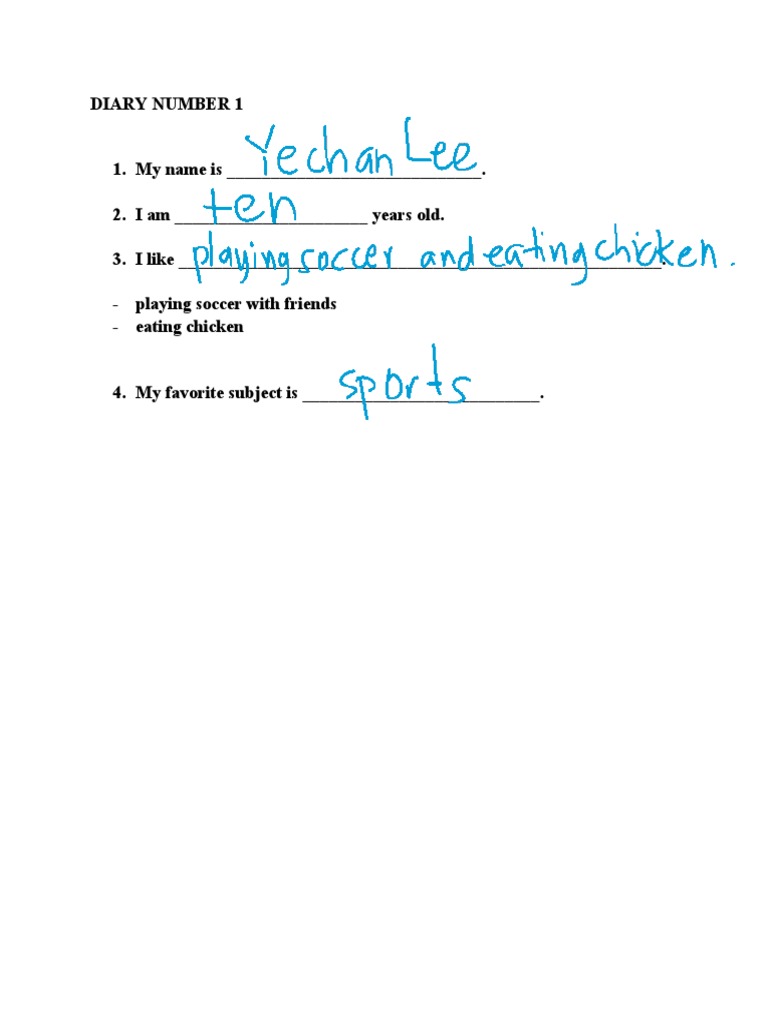 DIARY NUMBER 1
1. My name is Yechan Lee.
2. I am ten years old.
3. I like playing soccer and eating chicken.
- playing soccer with friends
- eating chicken
4. My favorite subject is sports.